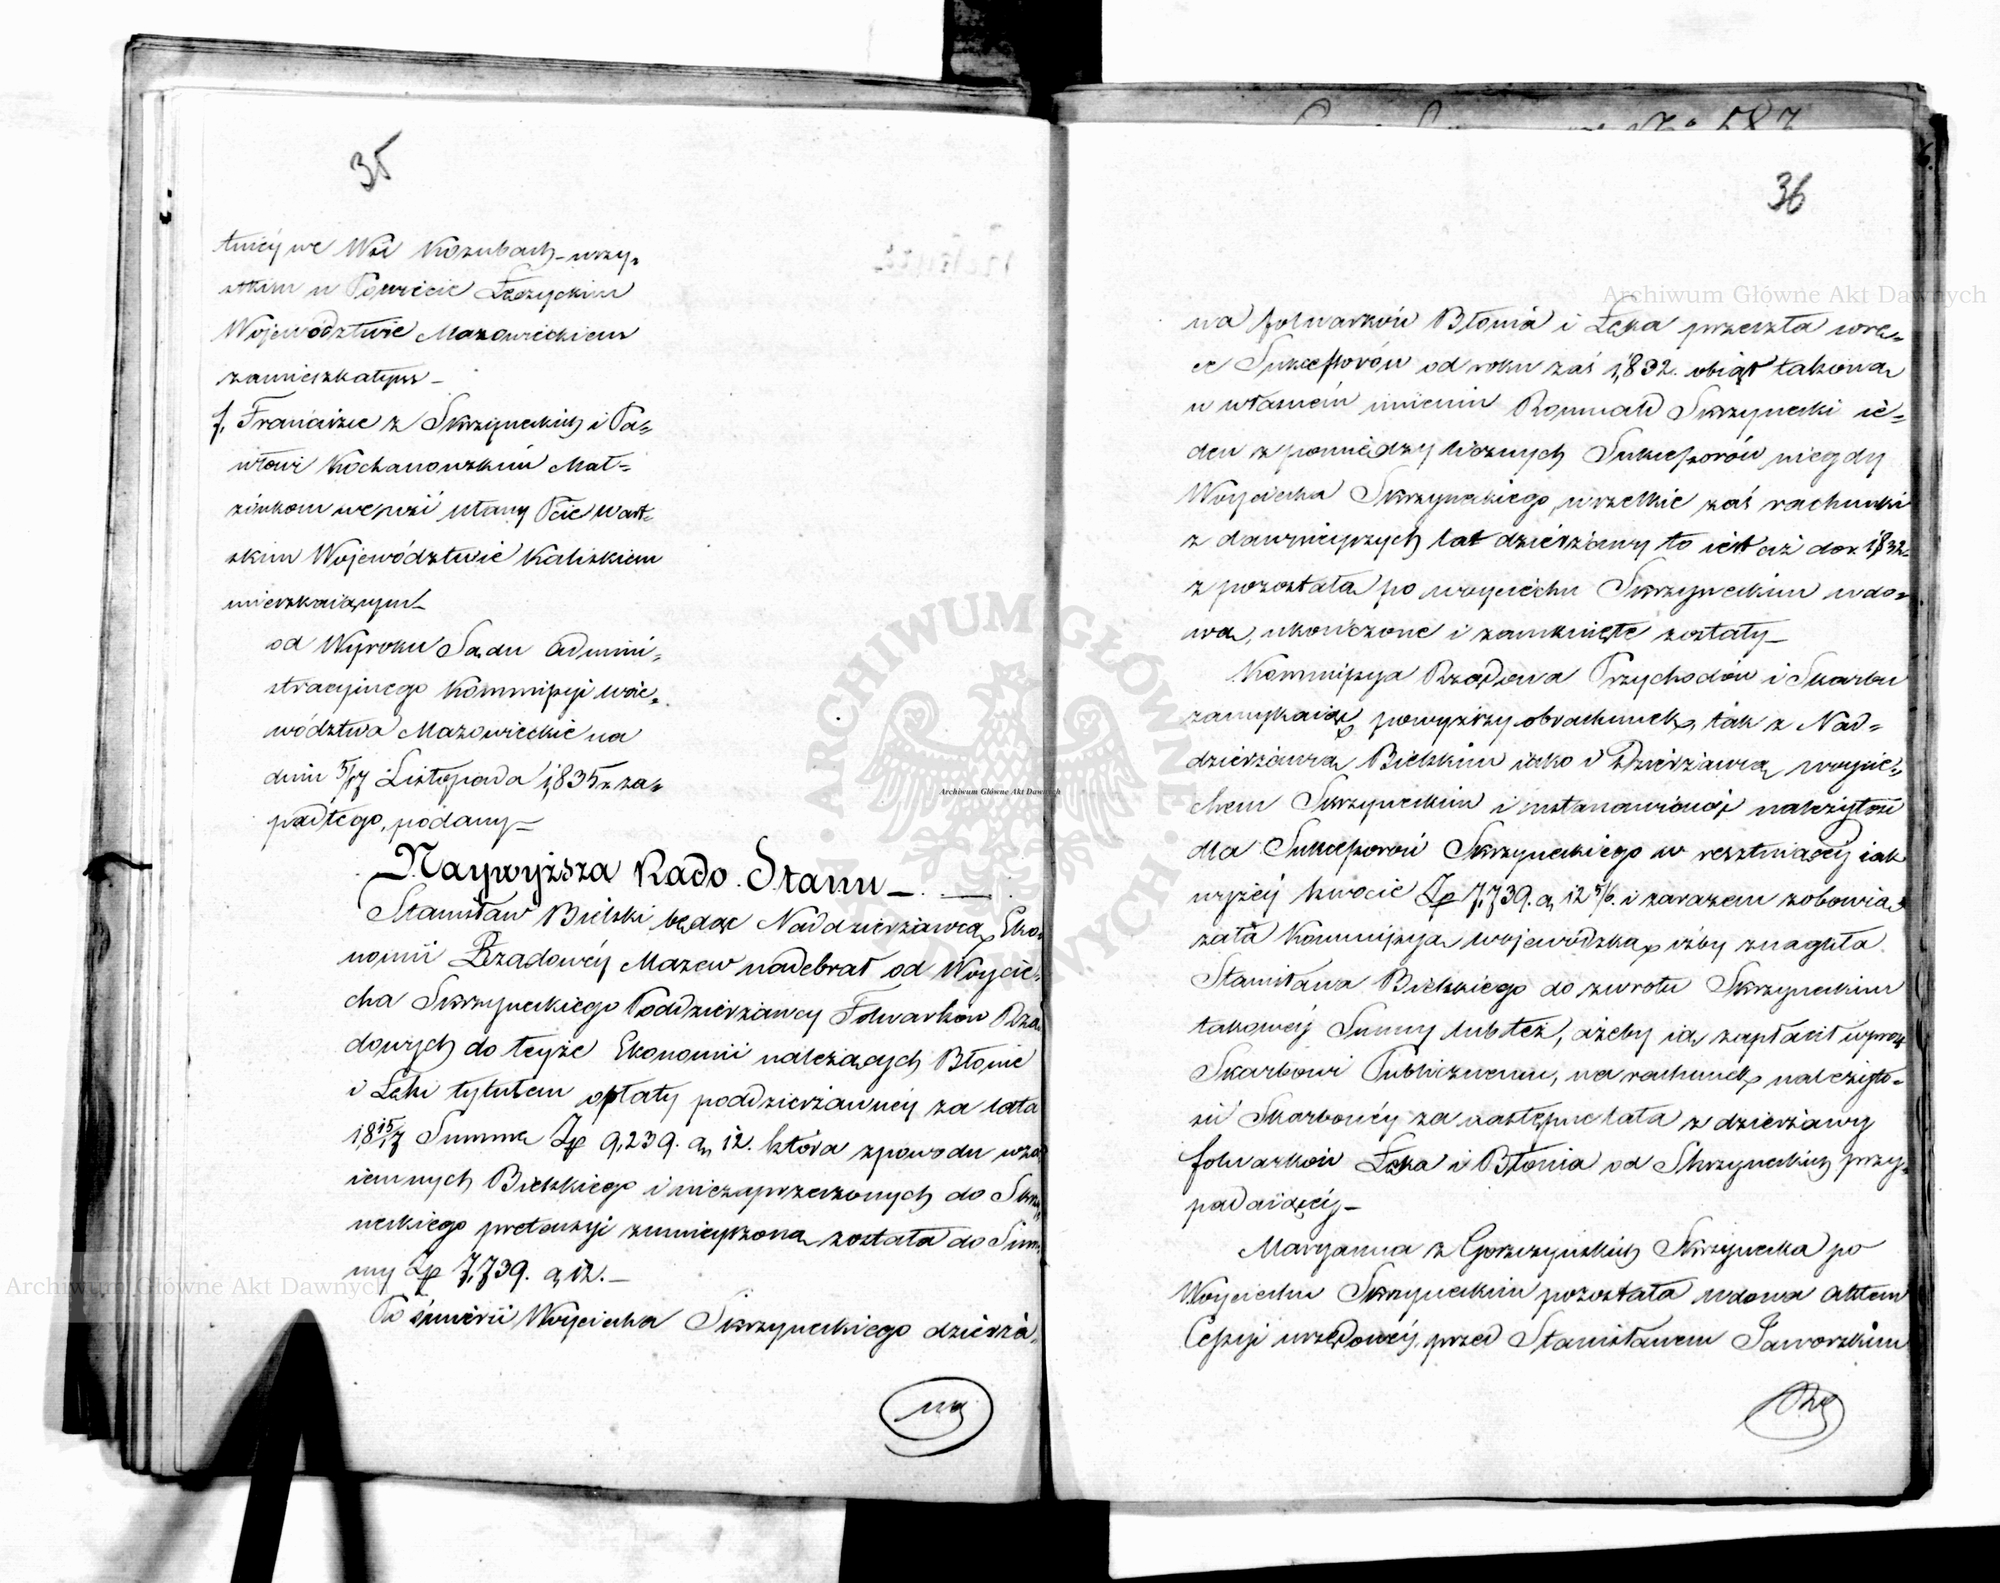 35
tniéy we Wsi Kozubach wszy-
stkim w Powiecie Łęczyckim
Województwie Mazowieckiem
zamieszkałym –
f, Franciszce z Skrzyneckich i Pa-
włowi Kochanowskim Mał-
żonkom we wsi Pcie Wart-
skim Województwie Kaliskiem
mieszkaiącym
od Wyroku Sądu Admini-
stracyinego Kommissyi Woie-
wództwa Mazowieckie na
dniu 5/17 Listopada 1835 r. za-
padłego, podany –
Naywyższa Rado Stanu –
Stanisław Bielski będąc Naddzierżawcą Eko-
nomii Rządowéy Mazew nadebrał od Woycie-
cha Skrzyneckiego Poddzierżawcy Folwarków Rzą-
dowych do teyże Ekonomii należących Błonie
i Łęki tytułem opłaty poddzierżawnéy za lata
18 15/17 Summę Zp 9,239. g, 12. która z powodu wza-
iemnych Bielskiego i niezaprzeczonych do Skrzy-
neckiego pretensyi zmnieyszona została do Sum-
my Zp 7,739. g, 12. –
Po śmierci Woyciecha Skrzyneckiego dzierża-
36
wa folwarków Błonia i Łęka przeszła w rę-
ce Sukcessorów od roku zaś 1832. obiął takową
w własném imieniu Romuald Skrzynecki ie-
den z pomiędzy licznych Sukcessorów niegdy
Woyciecha Skrzyneckiego, wszelkie zaś rachunki
z dawnieyszych lat dzierżawy to iest aż do r. 1832
z pozostałą po Woyciechu Skrzyneckim wdo-
wą, ukończone i zamknięte zostały –
Kommissya Rządowa Przychodów i Skarbu
zamykaiąc powyższy obrachunek, tak z Nad-
dzierżawcą Bielskim iako i Dzierżawcą Woycie-
chem Skrzyneckim i ustanowiwszy należytość
dla Sukcessorów Skrzyneckiego w resztuiącéy iak
wyżéy kwocie Zp 7,739. g, 12 5/6. i zarazem zobowią-
zała Kommissyą Wojewódzką, iżby znagliła
Stanisława Bielskiego do zwrotu Skrzyneckim
takowéy Summy lub też, ażeby ią zapłacił wprost
Skarbowi Publicznemu, na rachunek należyto-
ści Skarbowéy za następne lata z dzierżawy
folwarków Łęka i Błonia od Skrzyneckich przy-
padaiącéy –
Maryanna z Gorszyńskich Skrzynecka po
Woyciechu Skrzyneckim pozostała wdowa aktem
Cessyi urzędowéy, przed Stanisławem Jaworskim
Archiwum Główne Akt Dawnych
Archiwum Główne Akt Dawnych
Archiwum Główne Akt Dawnych
ARCHIWUM GŁÓWNE AKT DAWNYCH